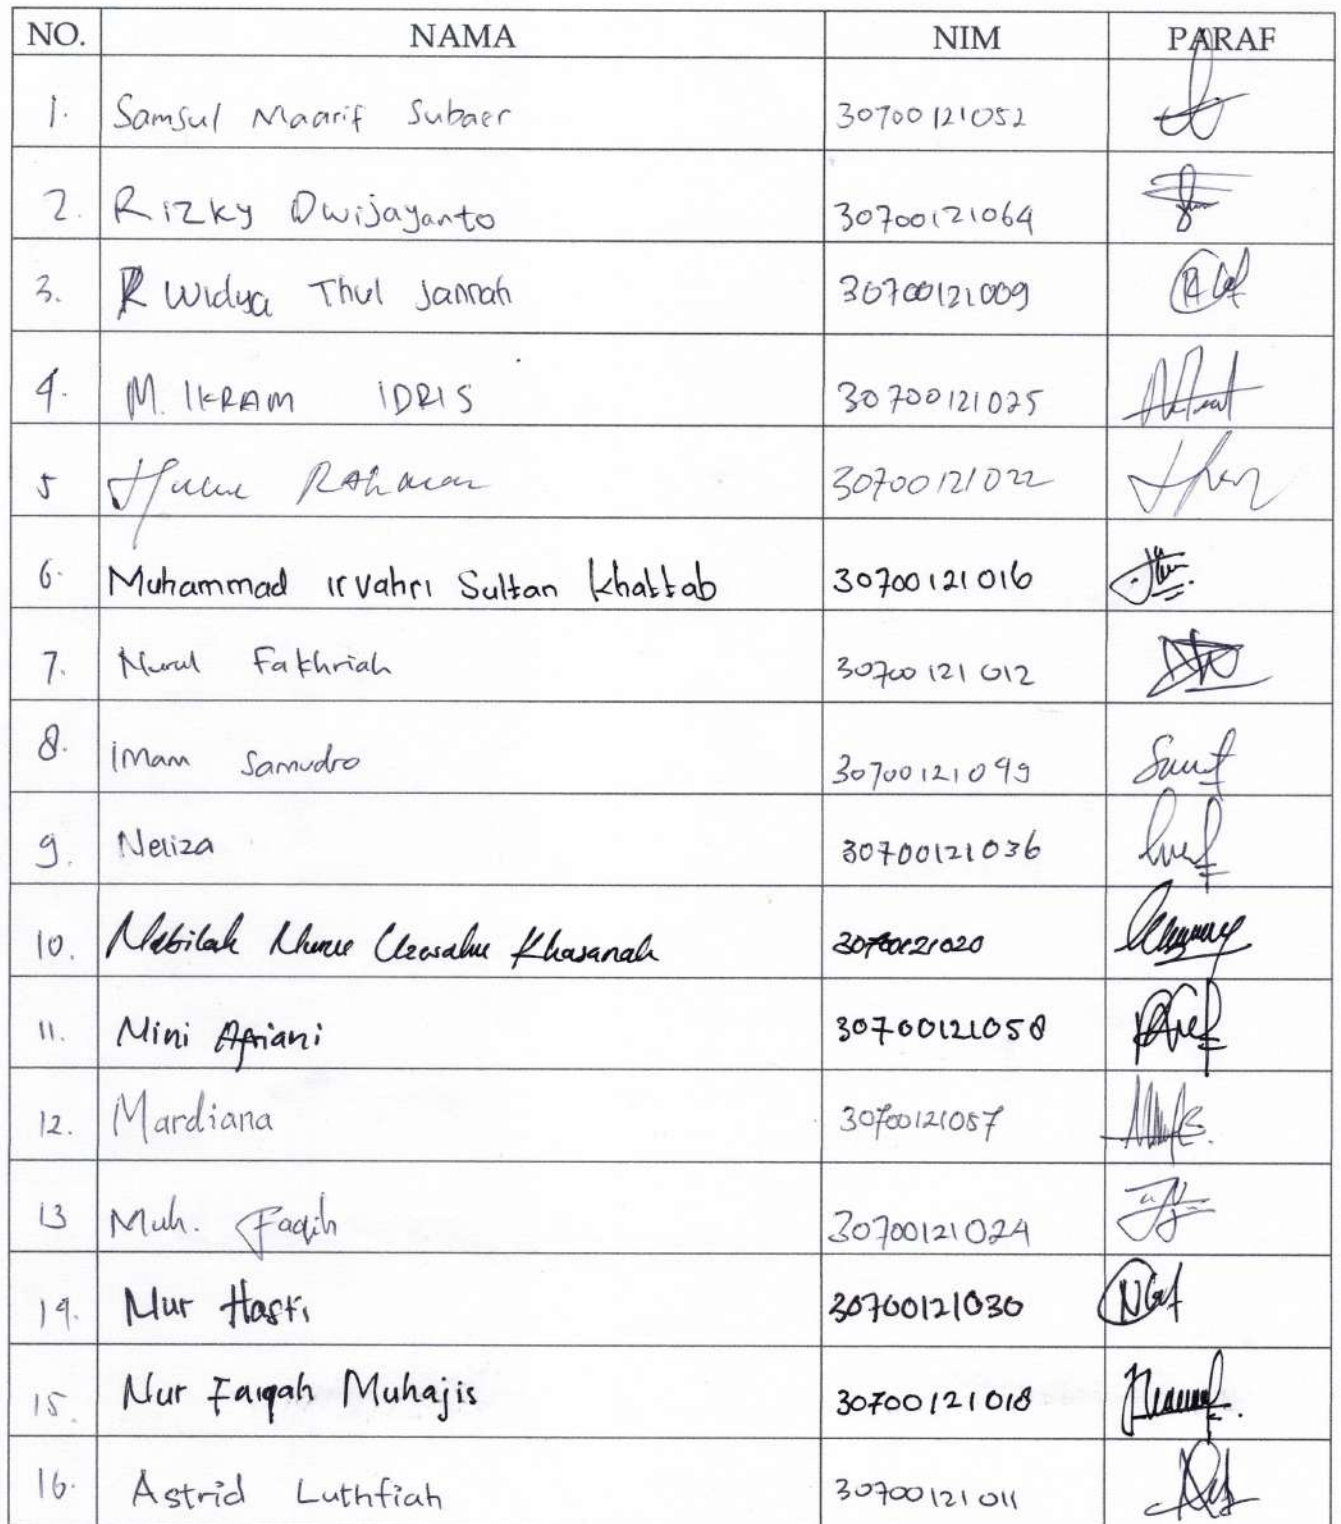 NO. NAMA NIM PARAF
1. Samsul Maarif Subaer 30700121052
2. Rizky Dwijayanto 30700121064
3. R Widya Thul Jannah 30700121009
4. M. IKRAM IDRIS 30700121025
5 30700121022
6. Muhammad irvahri Sultan Khattab 30700121016
7. Nurul Fakhriah 30700121012
8. Imam Samudro 30700121099
9. Neliza 30700121036
10. Nabilah Khasanah 30700121020
11. Mini Apriani 30700121058
12. Mardiana 30700121057
13 Muh. Faqih 30700121024
14. Nur Hasti 30700121030
15. Nur Faiqah Muhajis 30700121018
16. Astrid Luthfiah 30700121011